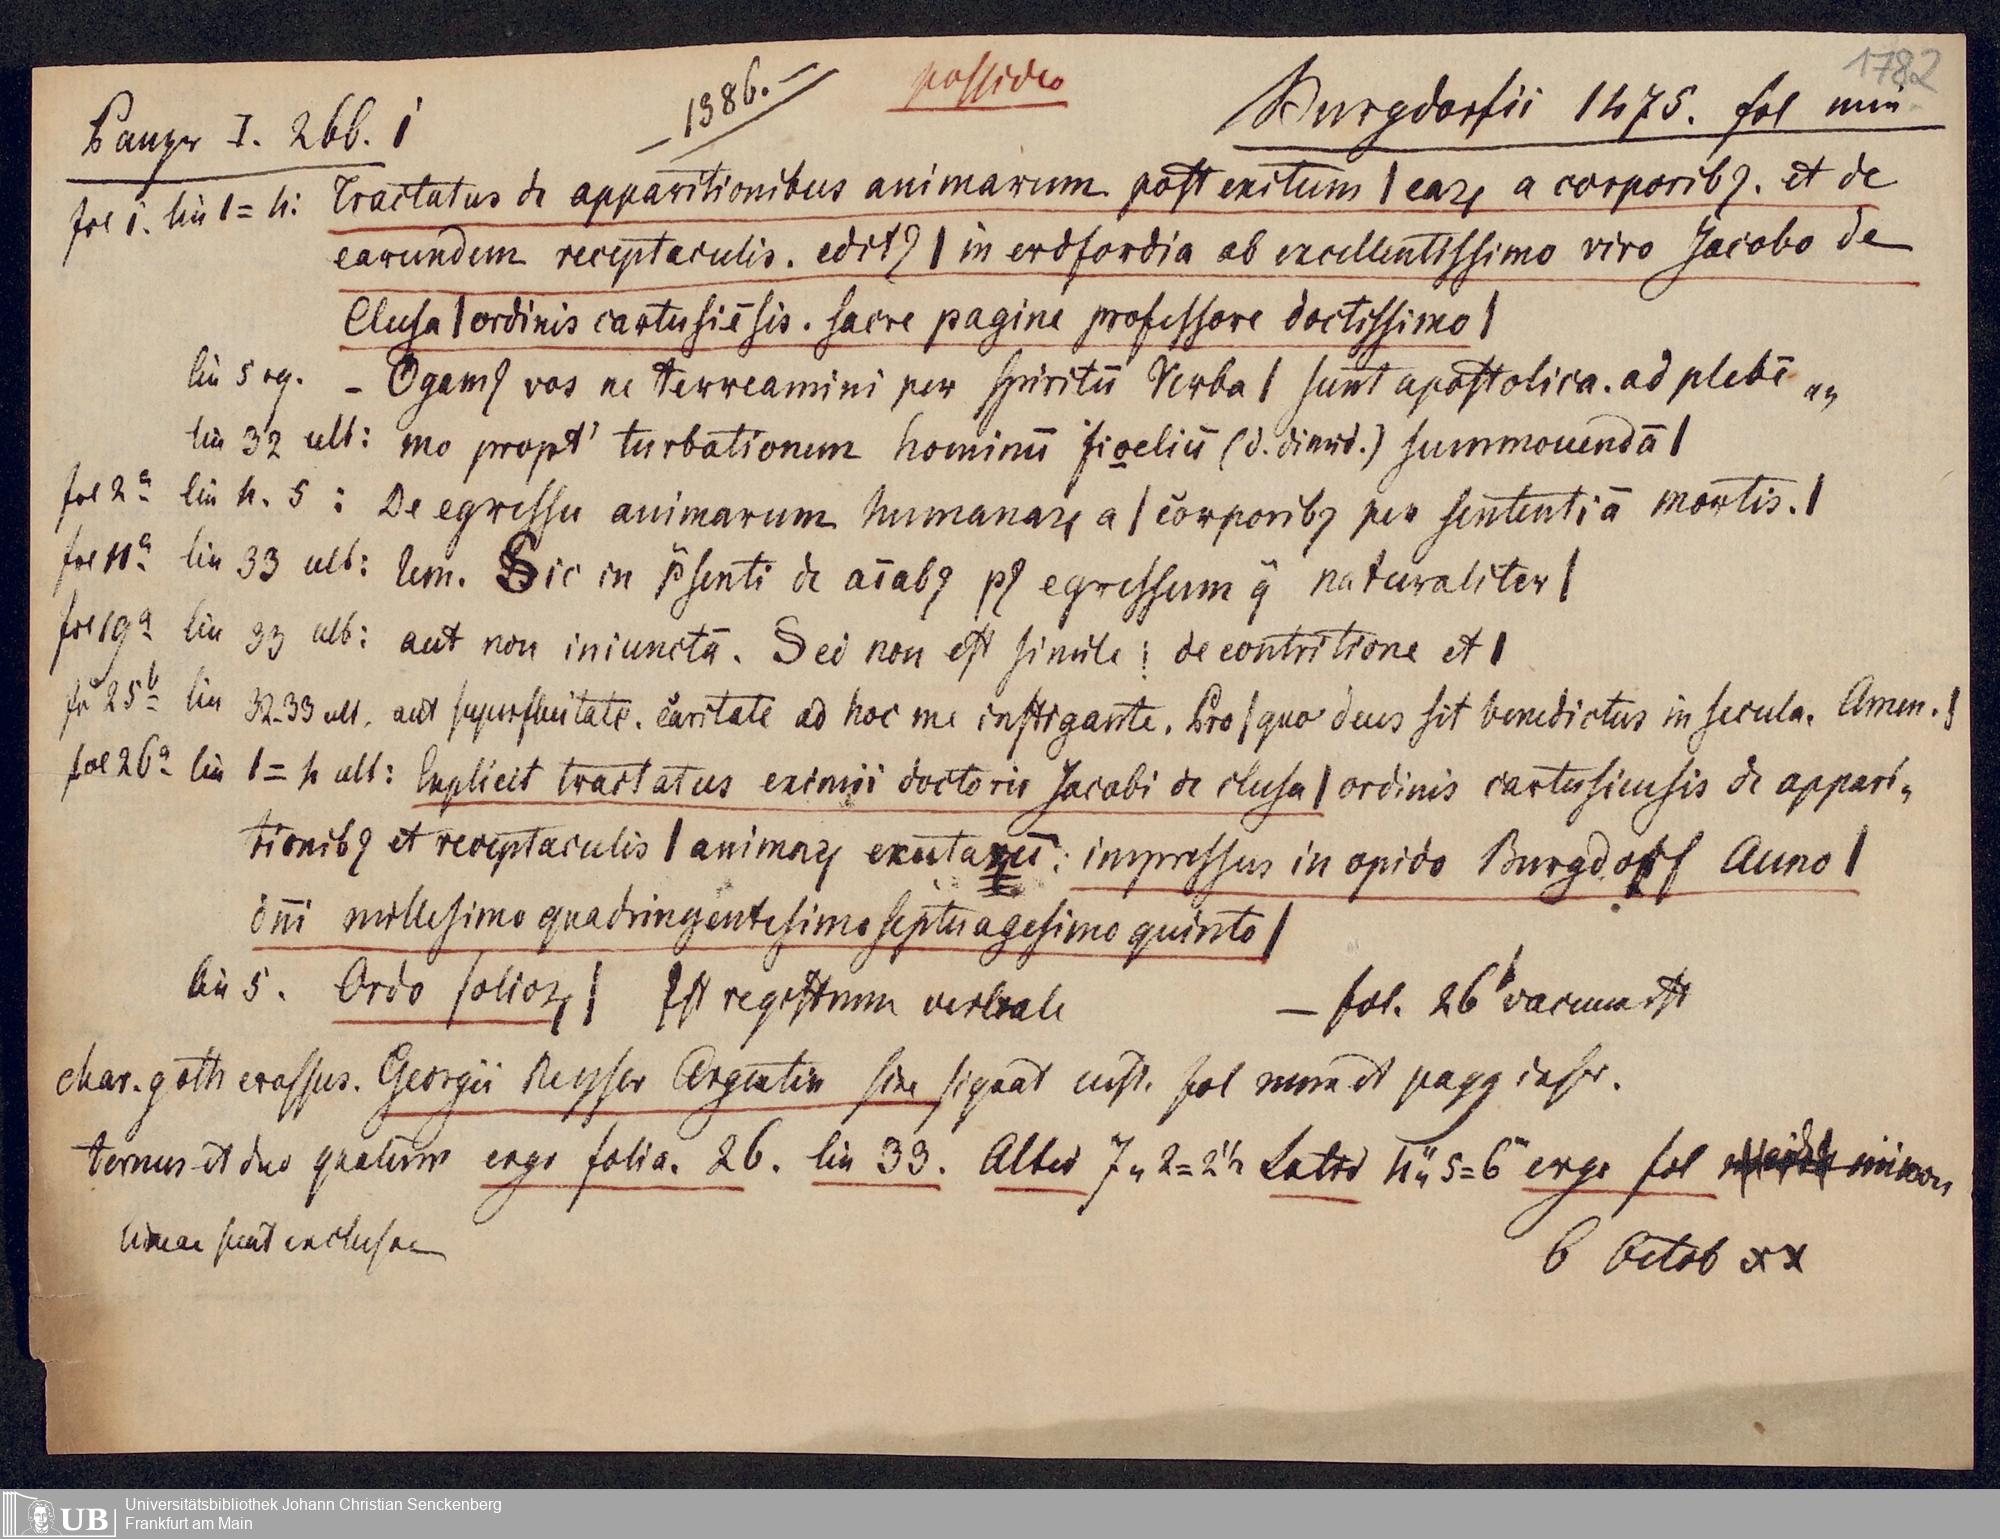 1782
Panzer I. 266. 1
1386.
possideo
Burgdorfii 1475. fol min
fol 1. lin 1=4: Tractatus de apparitionibus animarum post exitum | eaꝝ a corporibꝫ. et de
earundem receptaculis. editꝰ | in erdfordia ab excellentissimo viro Jacobo de
Clusa | ordinis cartusiēsis. sacre pagine professore doctissimo |
lin 5 sq. – Ogamꝰ vos ne terreamini per spiritū Verba | sunt apostolica. ad plebē „
lin 32 ult: mo propt' turbationem hominū fidelium (d. dimid.) summouendā |
fol 2a lin 4. 5: De egressu animarum humanaꝝ a | corporibꝫ per sententiā mortis. |
fol 11a lin 33 ult: lem. Sic in p̄senti de aīabꝫ pꝰ egressum q̄ naturaliter |
fol 19a lin 33 ult: aut non iniunctā. Sed non est simile: de contritione et |
fo 25b lin 32-33 ult. aut superfluitatē. caritate ad hoc me instigante. Pro | quo deus sit benedictus in secula. Amen. |
fol 26a lin 1=4 ult: Explicit tractatus eximii doctoris Jacobi de clusa | ordinis cartusiensis de appari„
tionibꝫ et receptaculis | animaꝝ exutarū: impressus in opido Burgdorf Anno |
dn̄i millesimo quadringentesimo septuagesimo quinto |
lin 5. Ordo folioꝝ | Est registrum verbale – fol. 26b vacuum est
char. goth crassus. Georgii Reyser Argentin sine signat cust. fol num et pagg inscr.
ternus et duo quaterni ergo folia. 26. lin 33. Altid 7„ 2=2''' Latid 4„ 5=6''' ergo fol minori
lineae sunt exclusae
6 Octob xx
Universitätsbibliothek Johann Christian Senckenberg
UB Frankfurt am Main